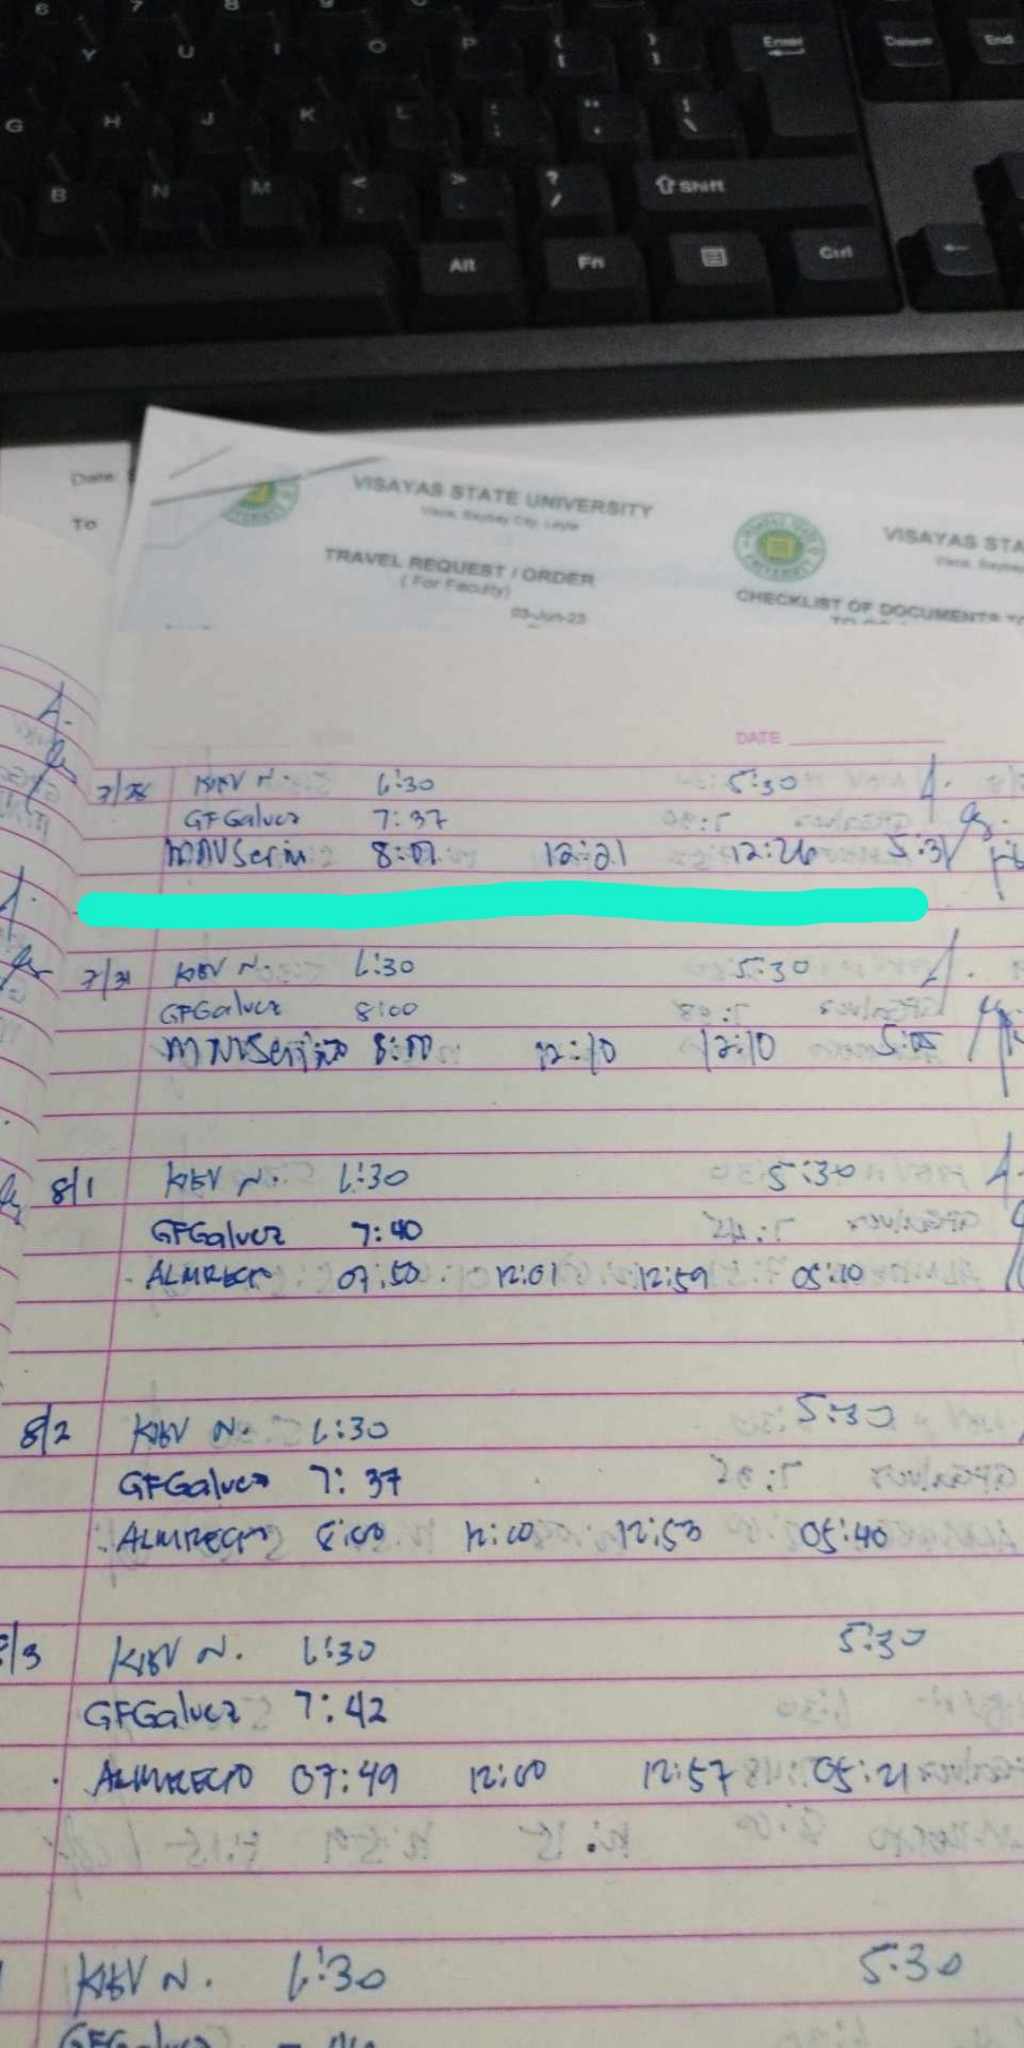 6 7 8
Y U I O P { [ } ] Enter Delete End
G H J K L : ; " ' | \
B N M < , > . ? / Shift
Alt Fn Ctrl
Date:
To
VISAYAS STATE UNIVERSITY
Visca, Baybay City, Leyte
TRAVEL REQUEST / ORDER
( For Faculty)
03-Jun-23
VISAYAS STA
Visca, Baybay
CHECKLIST OF DOCUMENTS TO
DATE
7/28 KBV N. 6:30 5:30
GFGalvez 7:37
8:01 12:21 12:26 5:31
7/31 KBV N. 6:30 5:30
GFGalvez 8:00
8:00 12:10 12:10 5:05
8/1 KBV N. 6:30 5:30
GFGalvez 7:40
ALMRECTO 07:50 12:01 12:59 05:10
8/2 KBV N. 6:30 5:30
GFGalvez 7:37
ALMRECTO 8:00 12:00 12:53 05:40
8/3 KBV N. 6:30 5:30
GFGalvez 7:42
ALMRECTO 07:49 12:00 12:57 05:21
KBV N. 6:30 5:30
GFGalvez